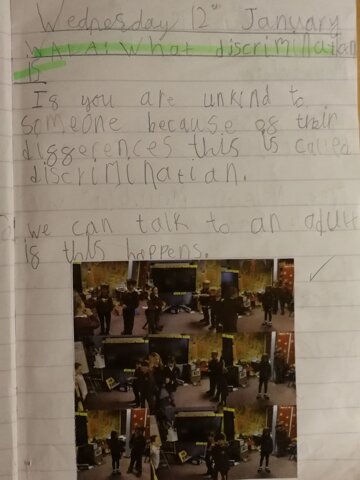 Wednesday 12th January
WALA: What discrimination
is
If you are unkind to
someone because of their
differences this is called
discrimination.
we can talk to an adult
if this happens.